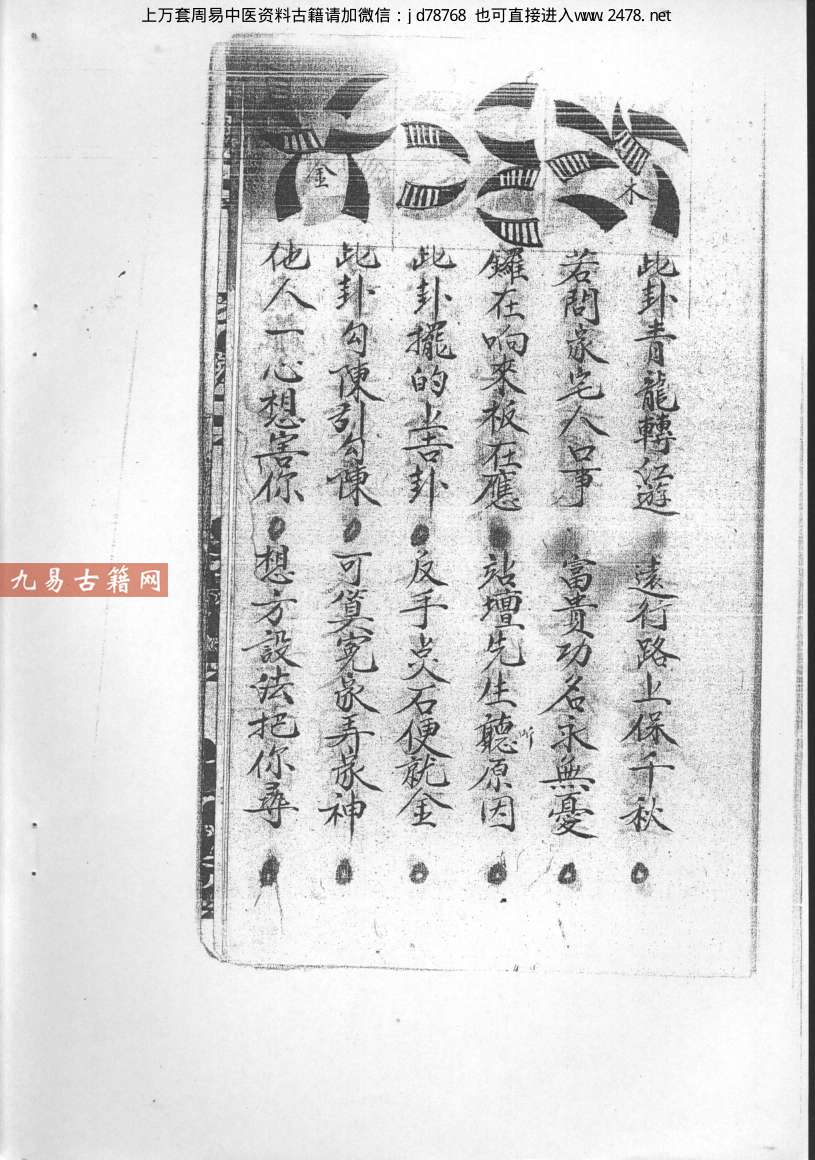 上万套周易中医资料古籍请加微信：jd78768 也可直接进入www.2478.net
木
金
此卦青龍轉位遊 遠行路上保千秋
若問家宅人口事 富貴功名永無憂
鑼在响來板在應 站壇先生聽原因
听
此卦擺的上吉卦 反手点石便就金
此卦勾陳引勾陳 可算冤家弄家神
他人一心想害你 想方設法把你尋
九易古籍网